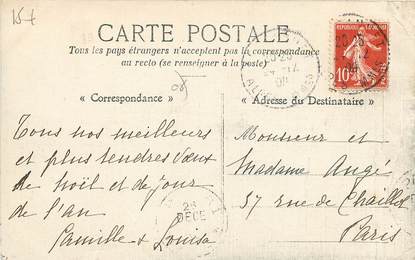 15 f
CARTE POSTALE
Tous les pays étrangers n'acceptent pas la correspondance
au recto (se renseigner à la poste)
« Correspondance »
« Adresse du Destinataire »
08
10
Tous nos meilleurs
et plus tendres vœux
de noël et de jour
de l'an
Camille & Louisa
24
DECE
Monsieur et
Madame Augé
37 rue de Chaillot
Paris